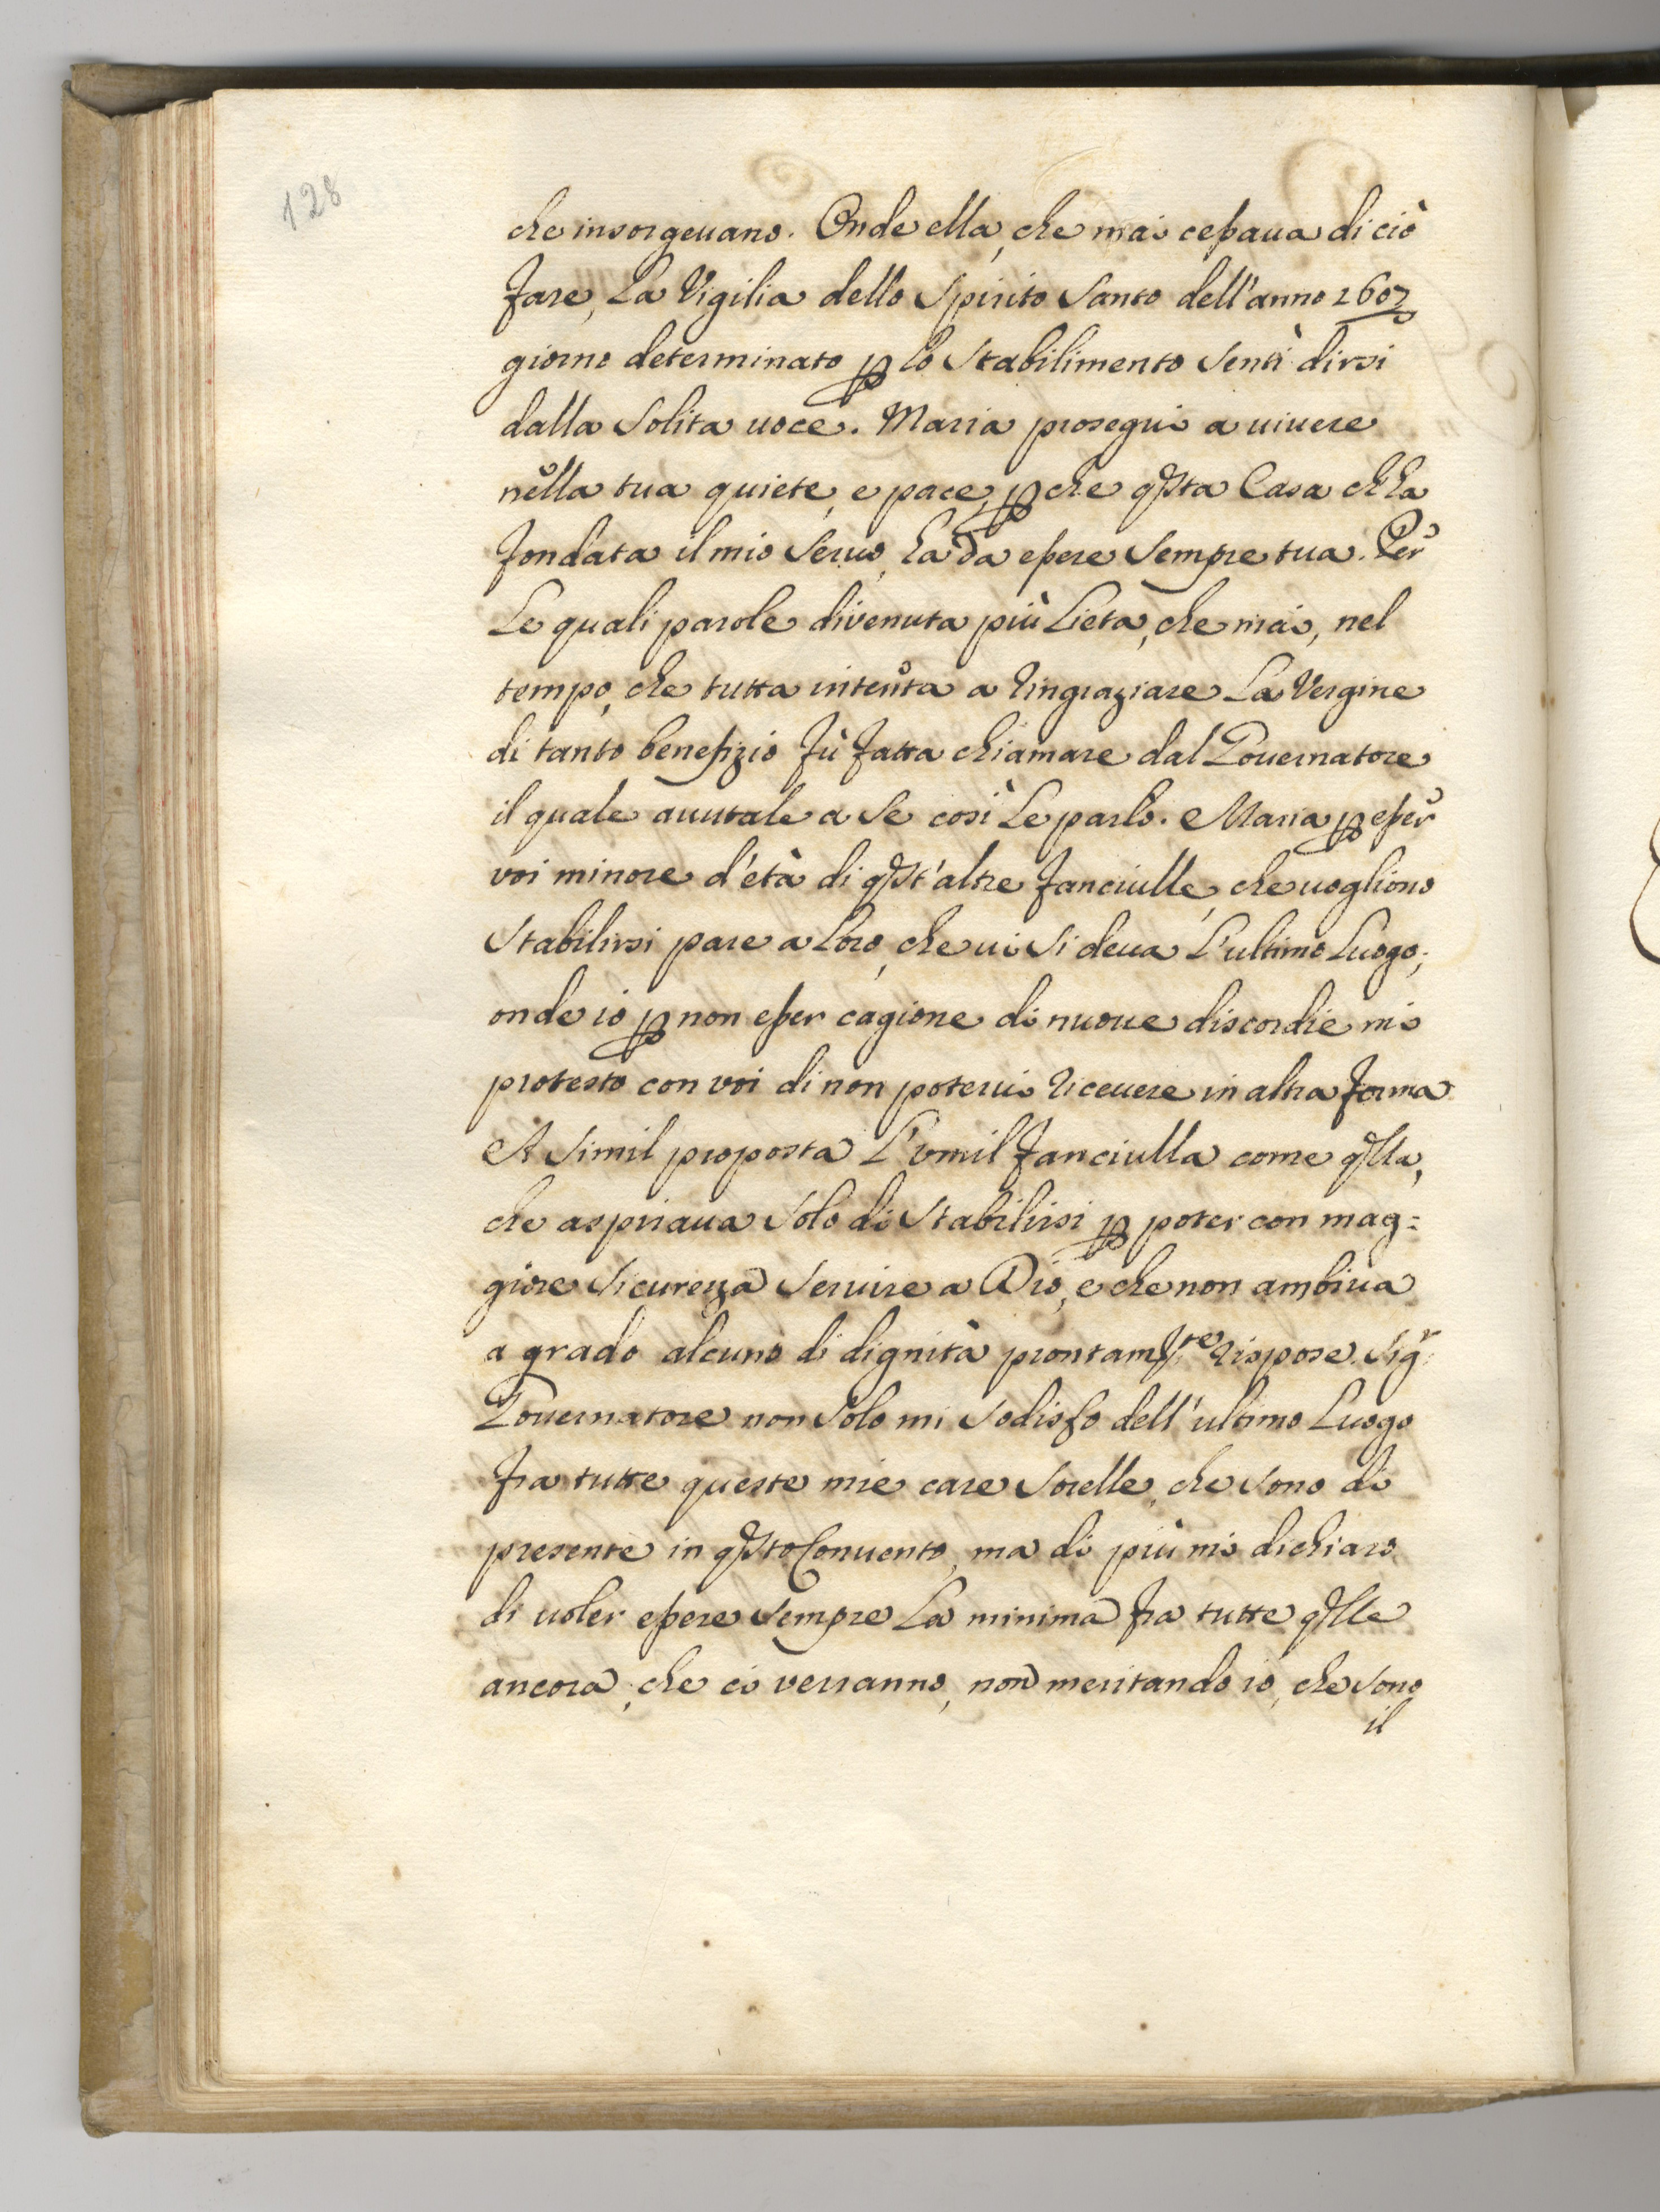 128
che insorgeuano. Onde ella, che mai cessaua di ciò
fare, La Vigilia dello Spirito Santo dell'anno 1607
giorno determinato ꝑ lo Stabilimento Sentì dirsi
dalla Solita uoce. Maria prosegui a uiuere
nella tua quiete, e pace, ꝑche qsta Casa ch'ha
fondata il mio Seruo, ha da essere Sempre tua. Per
Le quali parole divenuta più Lieta, che mai, nel
tempo, che tutta intenta a ringraziare La Vergine
di tanto benefizio fù fatta chiamare dal Gouernatore
il quale auutala a Se così Le parlò. Maria ꝑ esser
voi minore d'età di qst'altre fanciulle, che uogliono
Stabilirsi pare a Loro, che ui Si deua L'ultimo Luogo;
onde io ꝑ non esser cagione di nuoue discordie mi
protesto con voi di non poterui riceuere in altra forma
A Simil proposta L'vmil fanciulla come qlla,
che aspiraua Solo di Stabilirsi ꝑ poter con mag=
giore Sicurezza Seruire a Dio, e che non ambiua
a grado alcuno di dignità prontamte rispose. Sigr
Gouernatore non Solo mi Sodisfo dell'ultimo Luogo
fra tutte queste mie care Sorelle, che Sono di
presente in qsto Conuento, ma di più mi dichiaro
di uoler essere Sempre La minima fra tutte qlle
ancora, che ci verranno, non meritando io, che Sono
il